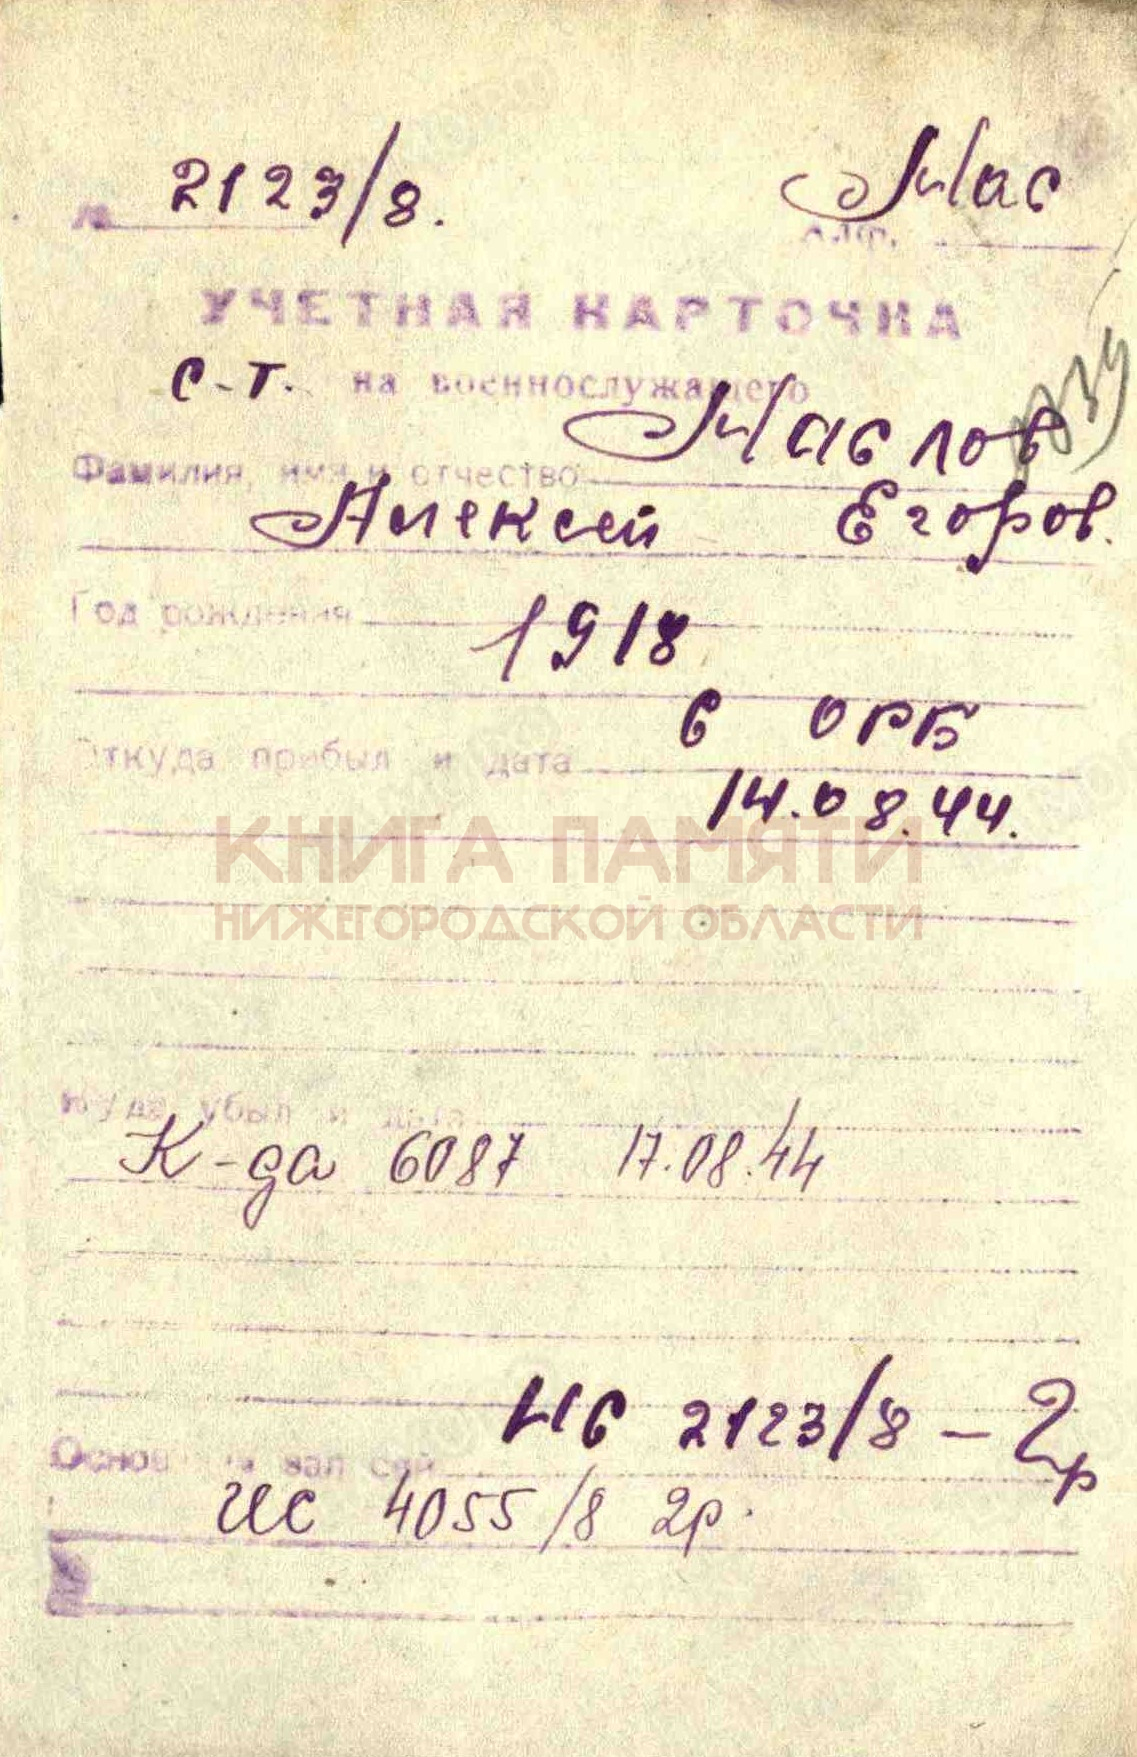 № 2123/8. Мас
Алф.
УЧЕТНАЯ КАРТОЧКА
с-т. на военнослужащего
Маслов
Фамилия, имя и отчество
Алексей Егоров.
Год рождения 1918
6 ОРБ
Откуда прибыл и дата
14.08.44.
КНИГА ПАМЯТИ
НИЖЕГОРОДСКОЙ ОБЛАСТИ
Куда убыл и дата
К-да 6087 17.08.44
ИС 2123/8 – 2р
ИС 4055/8 2р.